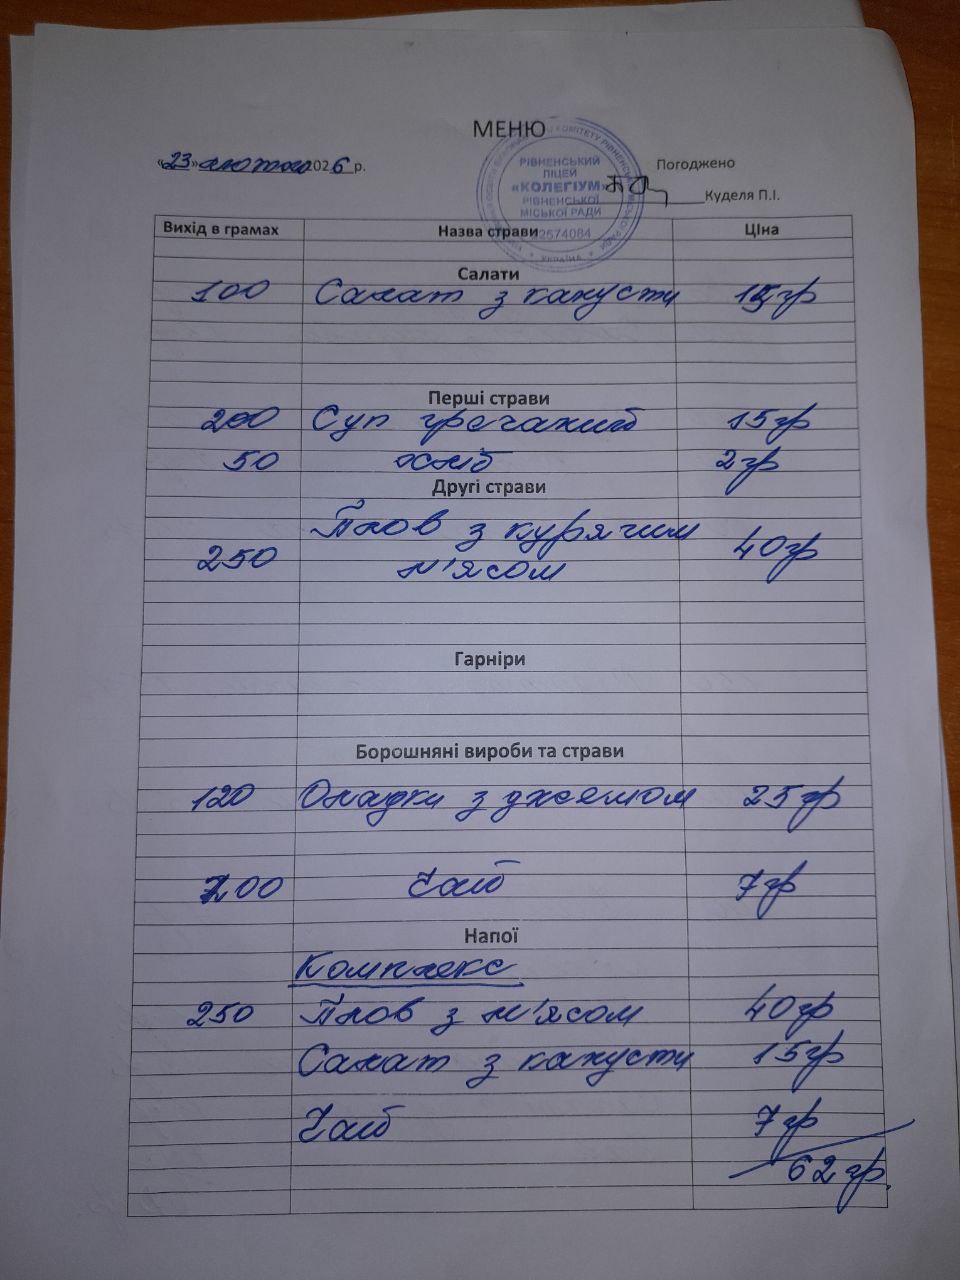 МЕНЮ
«23» лютого 2026 р.
Погоджено
Куделя П.І.
РІВНЕНСЬКИЙ
ЛІЦЕЙ
«КОЛЕГІУМ»
РІВНЕНСЬКОЇ
МІСЬКОЇ РАДИ
22574084
УКРАЇНА
Вихід в грамах Назва страви Ціна
Салати
100 Салат з капусти 15гр
Перші страви
200 Суп гречаний 15гр
50 хліб 2гр
Другі страви
250 Плов з курячим 40гр
м'ясом
Гарніри
Борошняні вироби та страви
120 Оладки з джемом 25гр
200 Чай 7гр
Напої
Комплекс
250 Плов з м'ясом 40гр
Салат з капусти 15гр
Чай 7гр
62гр.